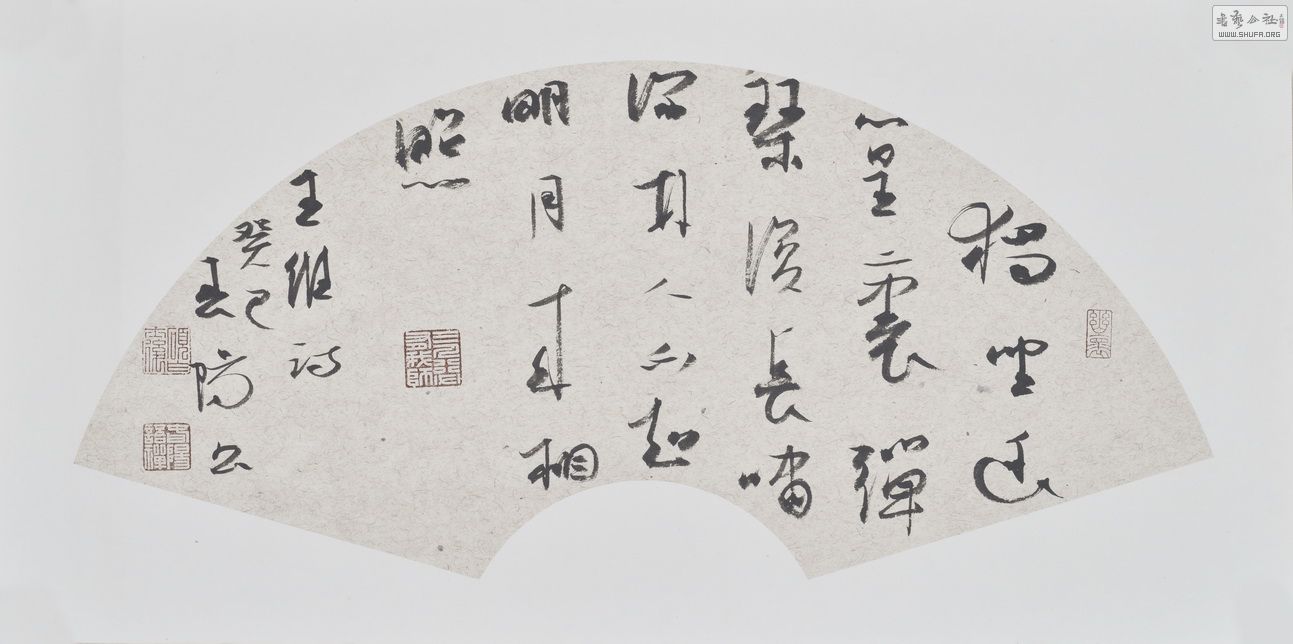 獨坐幽
篁裏彈
琴復長嘯
深林人不知
明月來相
照
王維詩
癸巳
书
書藝公社
WWW.SHUFA.ORG